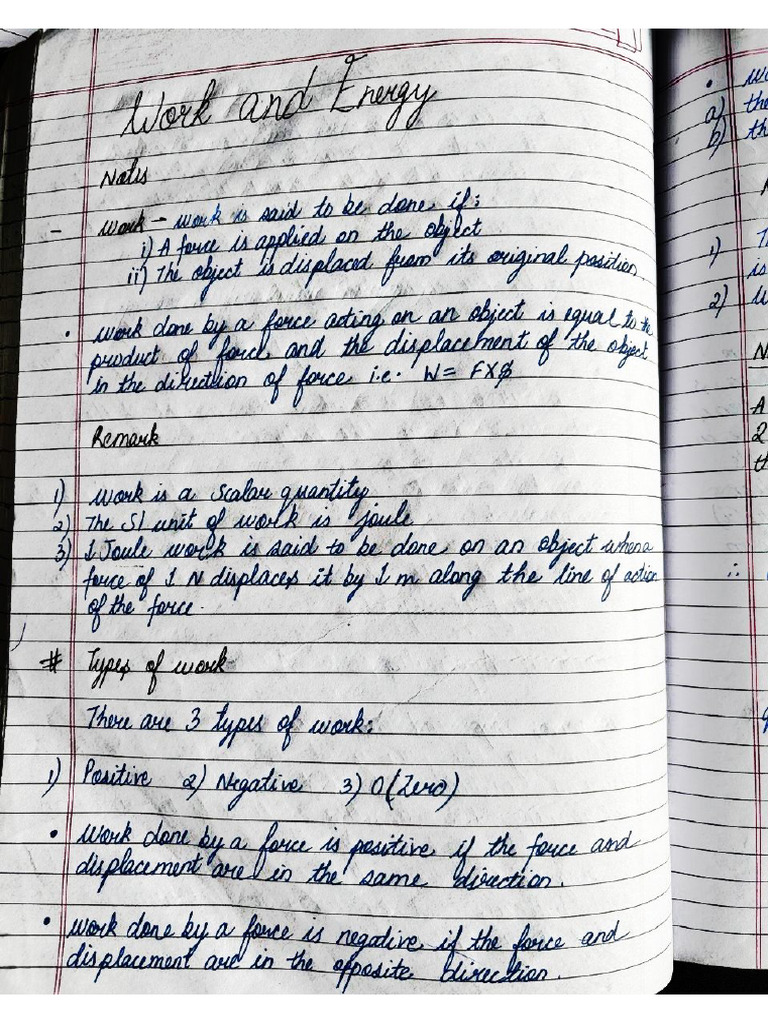 Work and Energy
Notes
- Work - work is said to be done if:
i) A force is applied on the object
ii) The object is displaced from its original position.
• Work done by a force acting on an object is equal to the
product of force and the displacement of the object
in the direction of force i.e. W = F X S
Remark
1) Work is a scalar quantity
2) The SI unit of work is joule
3) 1 Joule work is said to be done on an object when a
force of 1 N displaces it by 1 m along the line of action
of the force.
# Types of work
There are 3 types of work:
1) Positive 2) Negative 3) 0 (Zero)
• Work done by a force is positive if the force and
displacement are in the same direction.
• Work done by a force is negative if the force and
displacement are in the opposite direction.
•
a) the
b) th
1)
is
2)
A
2
th
∴